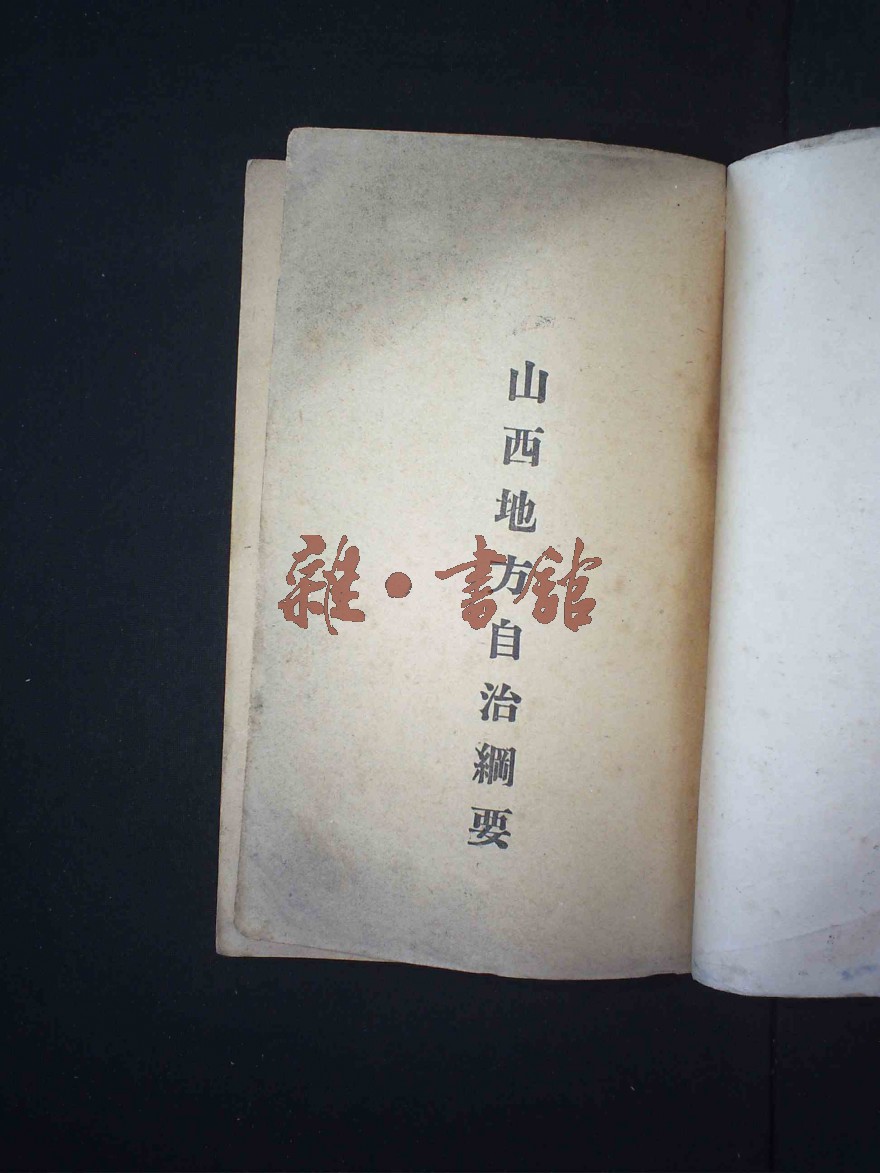 山西地方自治綱要
雜·書館